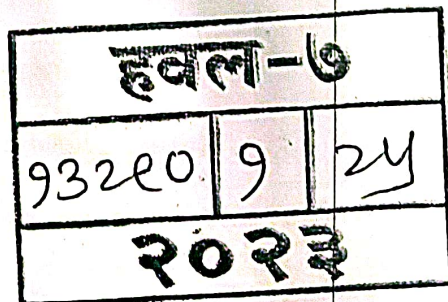 हवल-७
१३२९० १ २५
२०२३